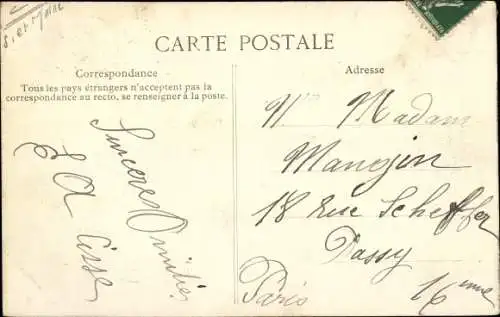 S. et Marne
CARTE POSTALE
Correspondance
Tous les pays étrangers n'acceptent pas la
correspondance au recto, se renseigner à la poste.
Sinceres Amitiés
Adresse
Madam
Mangin
18 Rue Scheffer
Passy
Paris 16eme